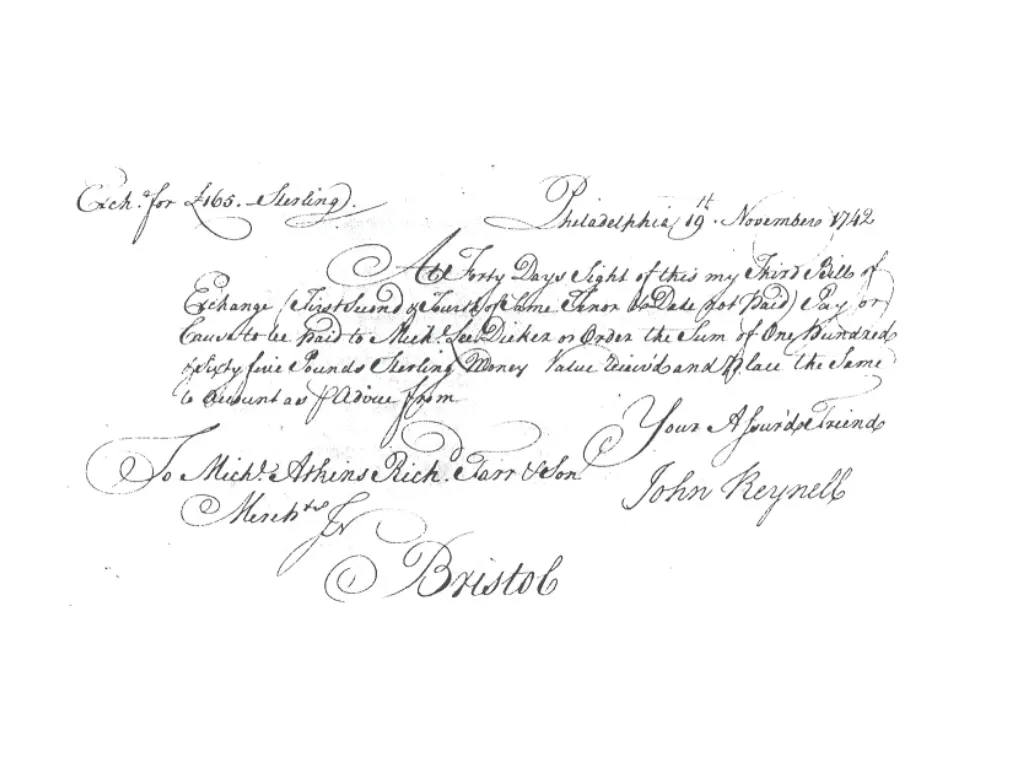 Exch.ª for £165. Sterling. Philadelphia 19.th November 1742
Att Forty Days Sight of this my Third Bill of
Exchange (First Second & Fourth of Same Tenor & Date not Paid) Pay or
Cause to be Paid to Mich.l Lee Dicker or Order the Sum of One Hundred
& Sixty five Pounds Sterling Money Value Receiv'd and Place the Same
to Account as ⅌ Advice from
Your Assur'd Friend
To Mich.l Atkins Rich.d Farr & Son
John Reynell
Merch.ts In
Bristol